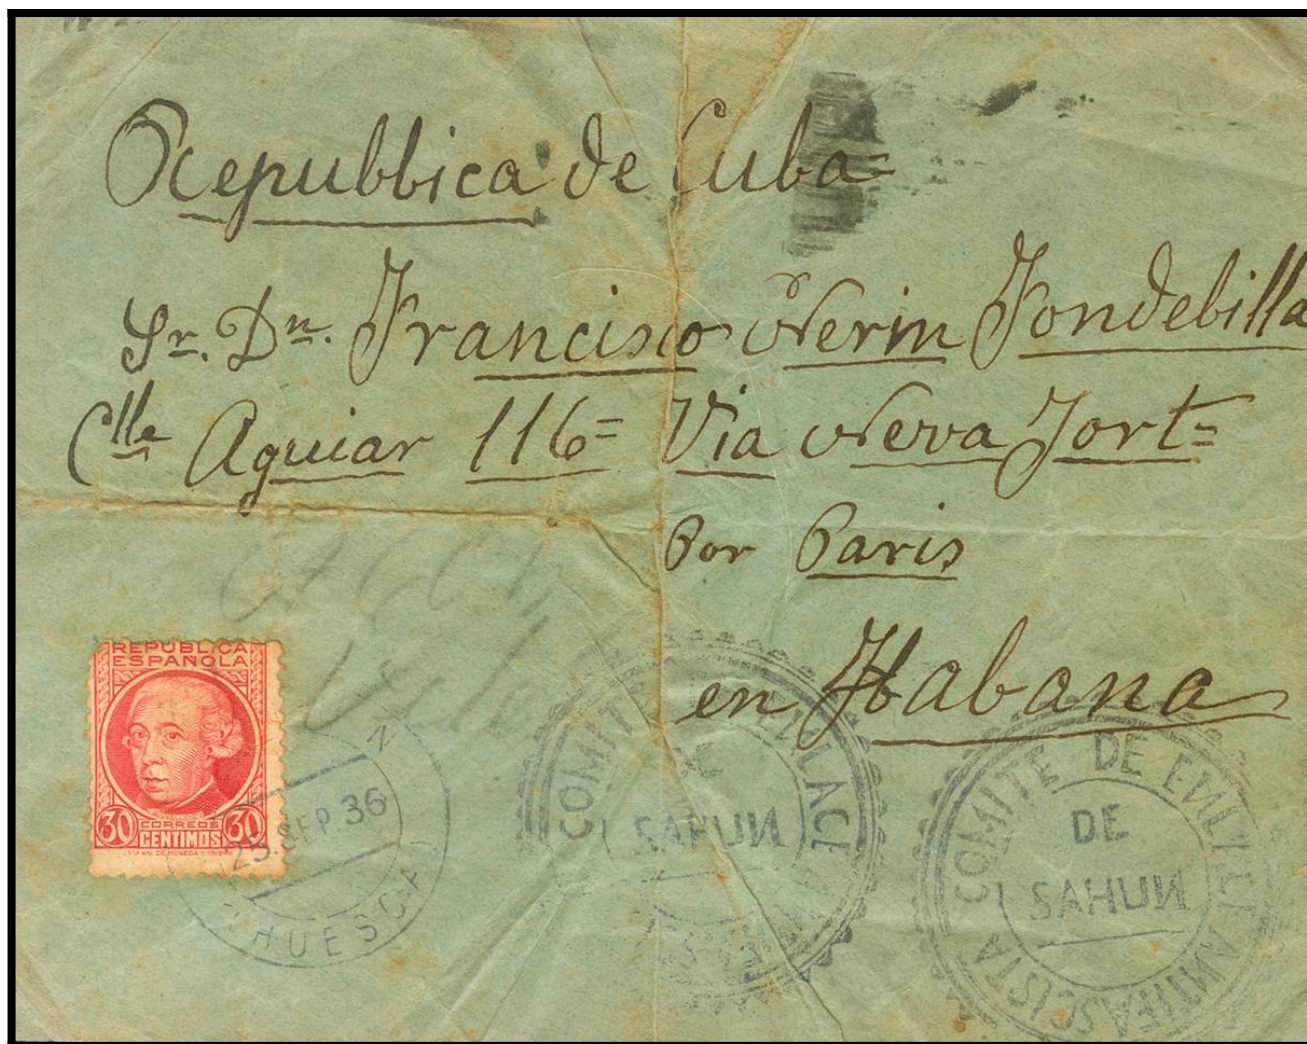 Republica de Cuba=
Sr. Dn. Francisco Nerin Fondebilla
Clle Aguiar 116= Via Neva Jort=
Por Paris
en Habana
REPUBLICA
ESPAÑOLA
30 CORREOS 30
CENTIMOS
25 SEP. 36
HUESCA
COMITE DE ENLACE
DE
SAHUN
COMITE DE ENLACE ANTIFASCISTA
DE
SAHUN